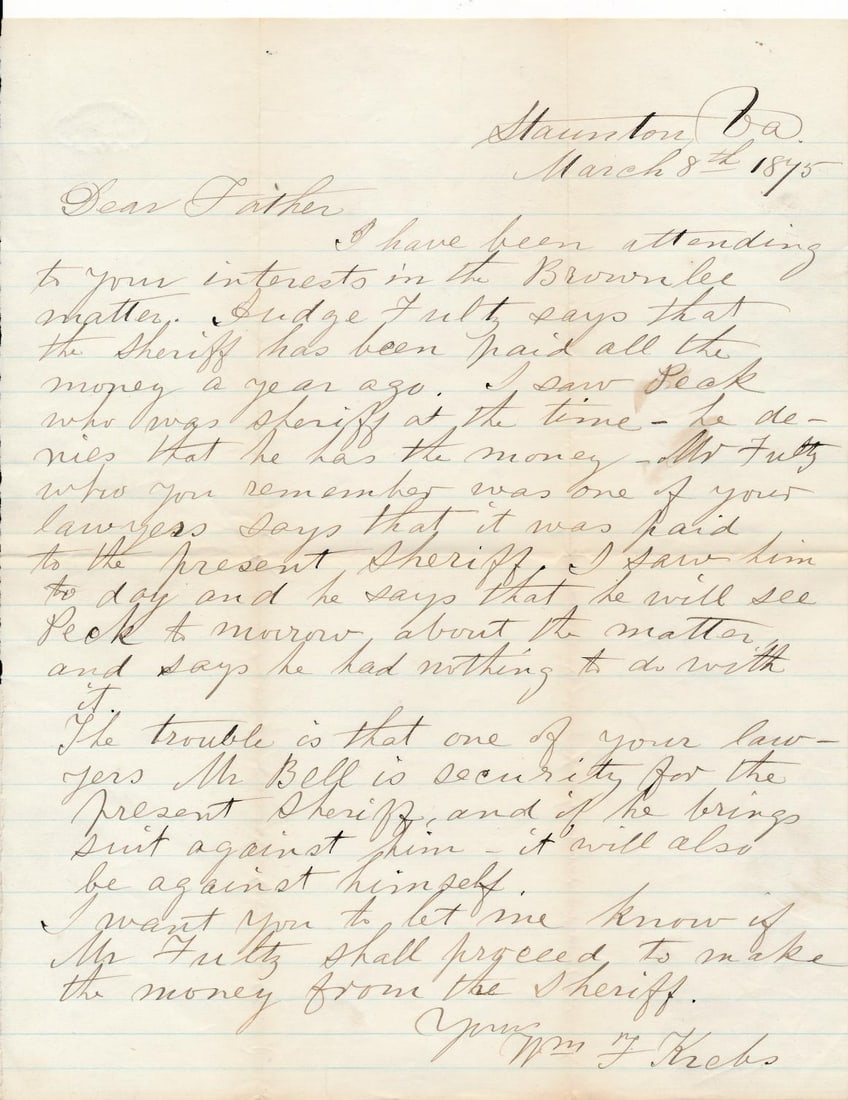 Staunton, Va.
March 8th 1875
Dear Father
I have been attending
to your interests in the Brownlee
matter. Judge Fultz says that
the sheriff has been paid all the
money a year ago. I saw Peck
who was sheriff at the time - he de-
nies that he has the money - Mr Fultz
who you remember was one of your
lawyers says that it was paid
to the present Sheriff. I saw him
to day and he says that he will see
Peck to morrow about the matter,
and says he had nothing to do with
it.
The trouble is that one of your law-
yers Mr Bell is security for the
present Sheriff, and if he brings
suit against him - it will also
be against himself.
I want you to let me know if
Mr Fultz shall proceed to make
the money from the Sheriff.
Yours
Wm F Krebs